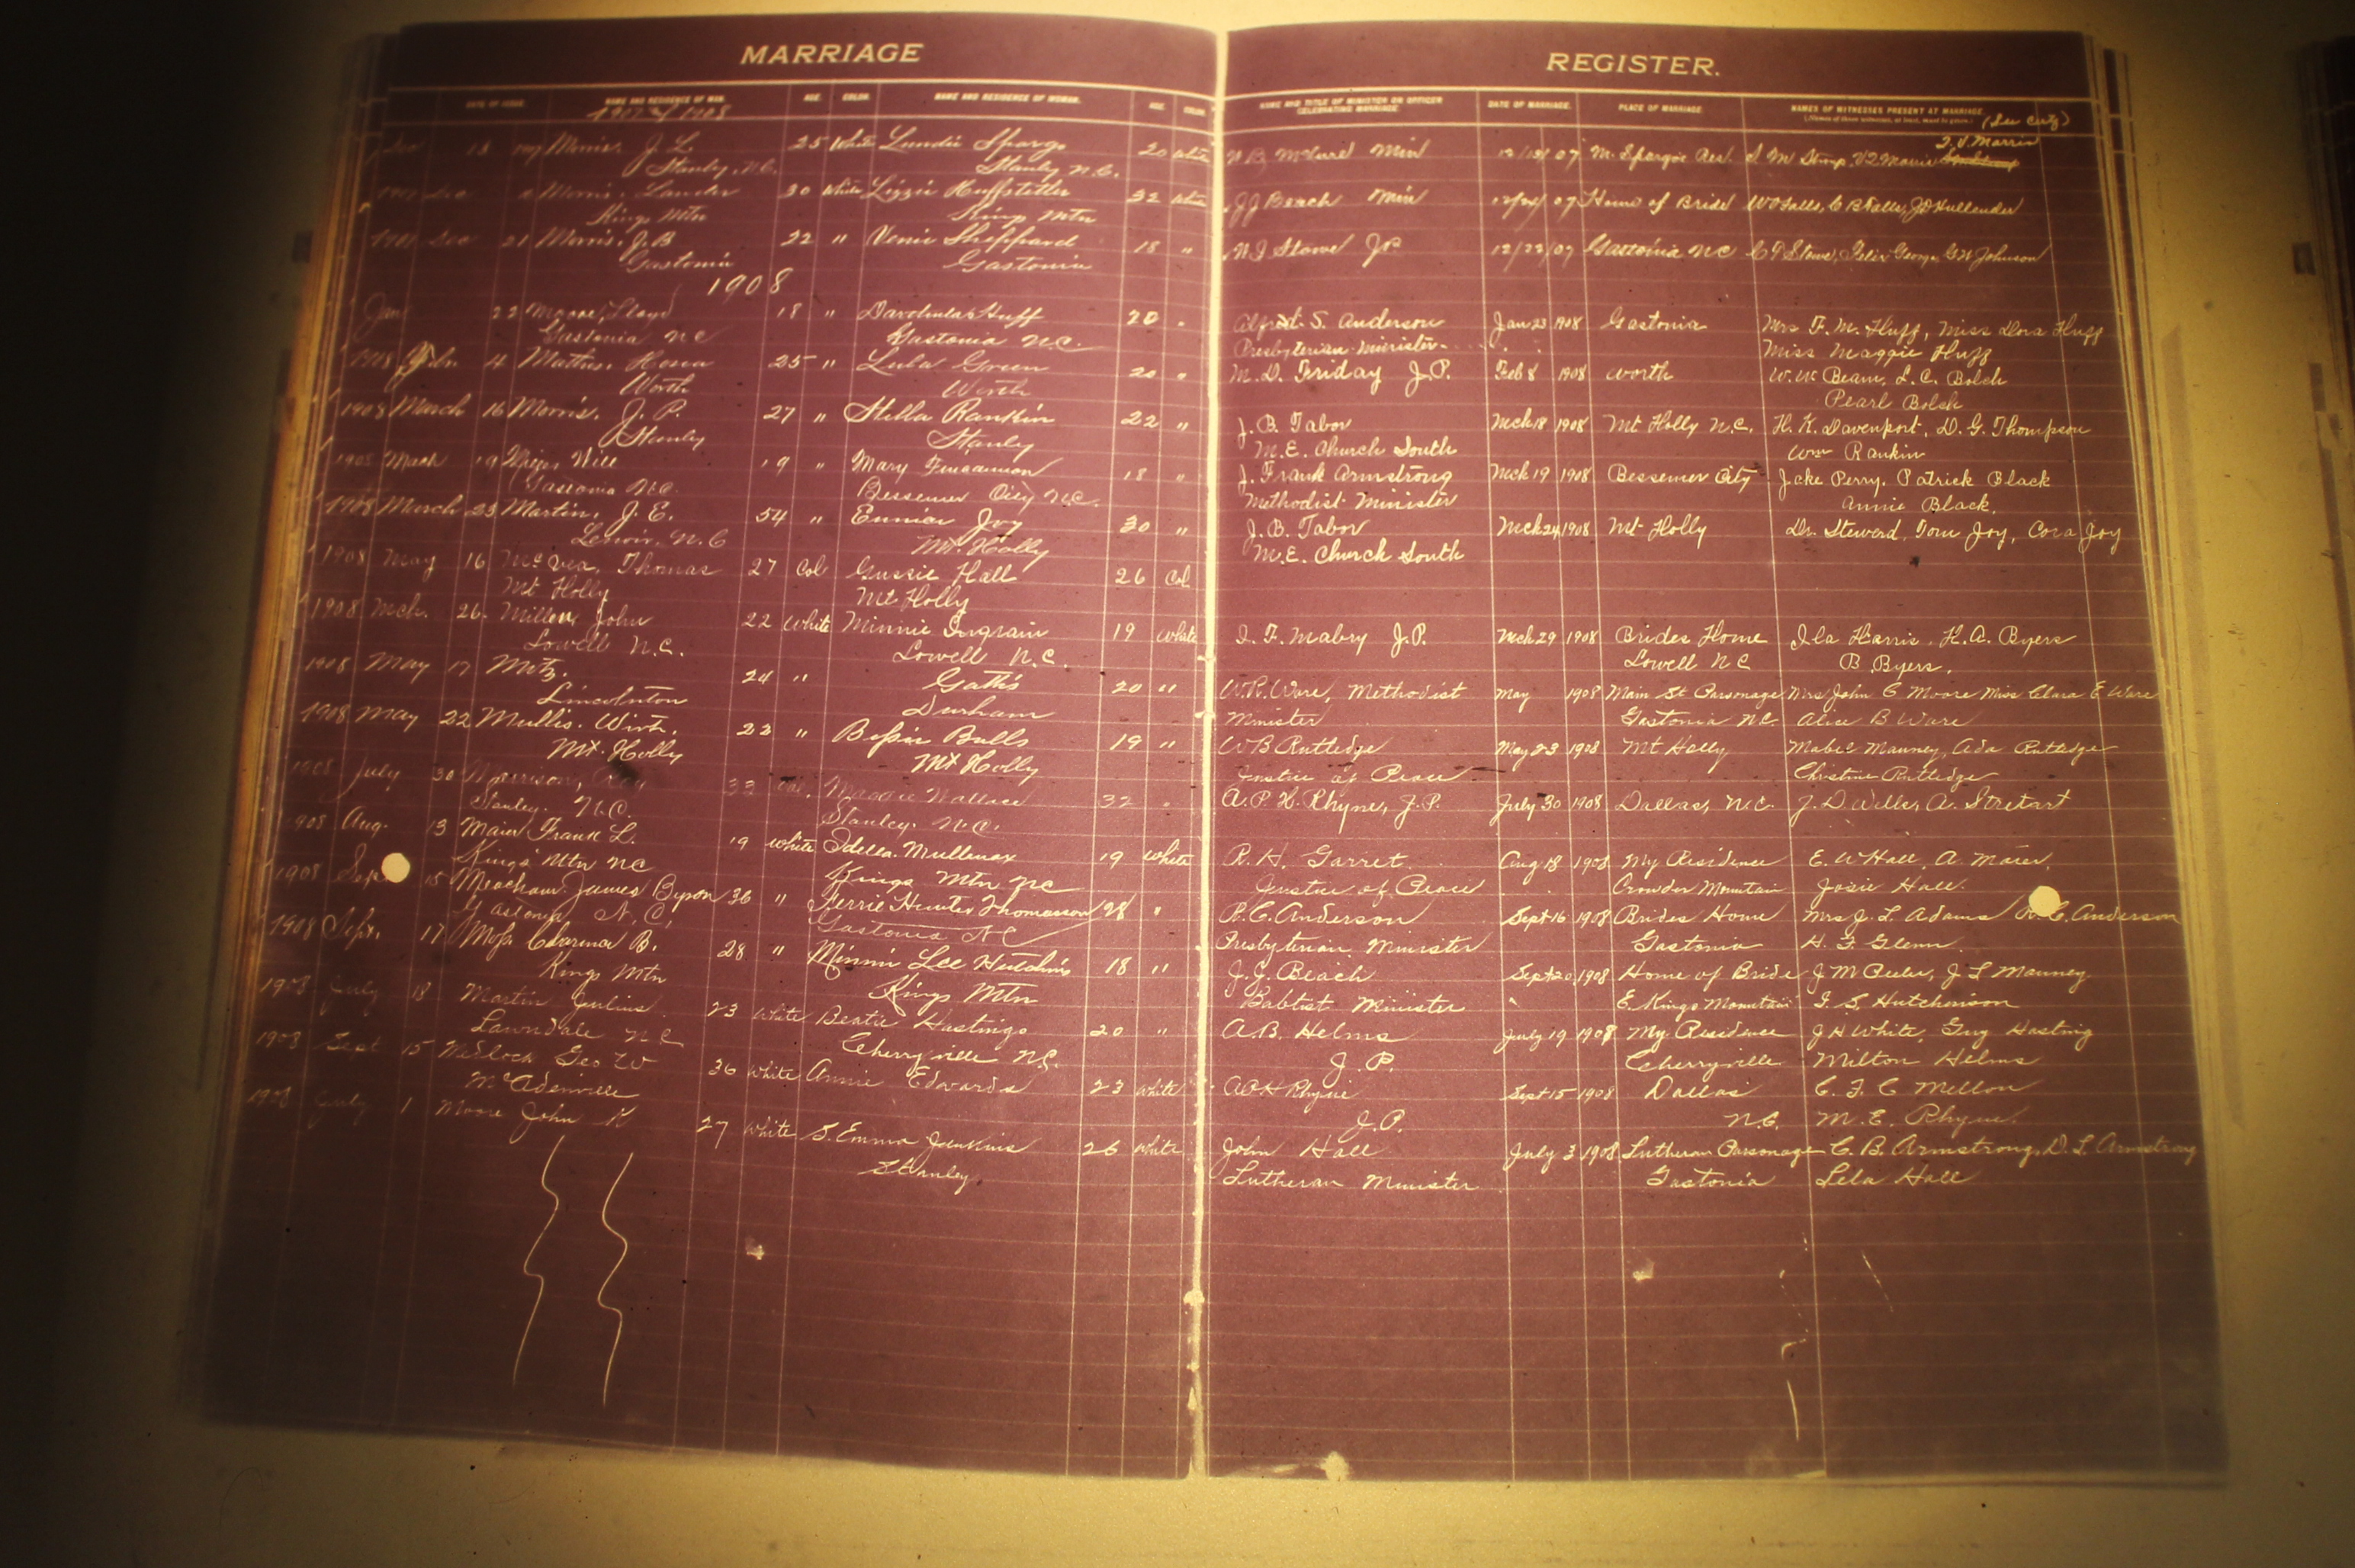 MARRIAGE REGISTER.
DATE OF ISSUE. NAME AND RESIDENCE OF MAN. AGE. COLOR. NAME AND RESIDENCE OF WOMAN. AGE. COLOR. NAME AND TITLE OF MINISTER OR OFFICER CELEBRATING MARRIAGE DATE OF MARRIAGE. PLACE OF MARRIAGE. NAMES OF WITNESSES PRESENT AT MARRIAGE.
1907 & 1908
Dec 18 Morris. J. L. 25 White Spargo 20 White McLurd Min 07 M. Spargoe Res. S M Stroup
Stanley, N.C. Stanley N.C.
1907 Dec Morris. Lander 30 White Lizzie Huffstetler 32 White J J Beach Min 07 Home of Bride W O Falls, C B Falls, J D Hullender
Kings Mtn Kings Mtn
Dec 21 Morris. J. B 22 " Venie Sheppard 18 " Stowe JP 12/22/07 Gastonia NC Stowe, George G W Johnson
Gastonia Gastonia
1908
Jan 22 Moore, Lloyd 18 " Huff 20 " Alfred S. Anderson Jan 23 1908 Gastonia Mrs F. M. Huff, Miss Dora Huff
Gastonia NC Gastonia N.C. Presbyterian Minister Miss Maggie Huff
1908 Feb. 4 25 " Lula Green 20 " M. D. Friday J.P. Feb 8 1908 Worth W. W. Beam, L. C. Bolch
Worth Worth Pearl Bolch
1908 March 16 Morris. J. P. 27 " Stella Rankin 22 " J. B. Tabor Mch 18 1908 Mt Holly N.C. H. K. Davenport, D. G. Thompson
Stanley Stanley M. E. Church South Wm Rankin
1908 Mach 19 19 " Mary 18 " J. Frank Armstrong Mch 19 1908 Bessemer City Jake Perry. Patrick Black
Gastonia N.C. Bessemer City N.C. Methodist Minister Annie Black.
1908 March 23 Martin. J. E. 54 " Joy 30 " J. B. Tabor Mch 24 1908 Mt Holly Dr. Steword, Tom Joy, Cora Joy
Lenoir, N.C Mt. Holly M.E. Church South
1908 May 16 Thomas 27 Col Gussie Hall 26 Col
Mt Holly Mt Holly
1908 Mch. 26 Miller John 22 White Minnie Ingrain 19 White Mabry J.P. Mch 29 1908 Brides Home Ila Harris, H. A. Byers
Lowell N.C. Lowell N.C. Lowell N C B. Byers.
1908 May 17 Metz. 24 " Gattis 20 " W. R. Ware, Methodist May 1908 Main St Parsonage Mrs John C Moore Miss Clara E Ware
Lincolnton Durham Minister Gastonia NC Alice B Ware
1908 May 22 Mullis. 22 " Bessie Bulls 19 " W B Rutledge May 23 1908 Mt Holly Mabel Mauney, Ada Rutledge
Mt. Holly Mt Holly Justice of Peace Christine Rutledge
1908 July 30 Morrison, 33 Col. Maggie Wallace 32 " A. P. H. Rhyne, J.P. July 30 1908 Dallas, N.C. J. D Wells, A.
Stanley. N.C. Stanley. N.C.
1908 Aug. 13 Maier Frank L. 19 White Idella Mullenax 19 White R. H. Garret Aug 18 1908 My Residence E. W Hall, A. Maier.
Kings Mtn NC Kings Mtn NC Justice of Peace Crowder Mountain Josie Hall.
1908 Sept 15 Meacham James Byron 36 " Ferrie Hunter Thomasson 28 " R. C. Anderson Sept 16 1908 Brides Home Mrs J. L Adams C. Anderson
Gastonia, N. C, Gastonia N C Presbyterian Minister Gastonia H. F. Glenn
1908 Sept. 17 Moss Clarence B. 28 " Minnie Lee Hutchins 18 " J. J. Beach Sept 20 1908 Home of Bride J M Peeler, J L Mauney
Kings Mtn Kings Mtn Babtist Minister E. Kings Mountain Hutchinson
1908 July 18 Martin Julius 23 White Beatie Hastings 20 " A. B. Helms July 19 1908 My Residence J H White, Guy Hasting
Lawndale N C Cherryville N.C. J. P. Cherryville Milton Helms
1908 Sept 15 Medlock Geo W 36 White Annie Edwards 23 White A P H Rhyne Sept 15 1908 Dallas C. F. C Mellon
McAdenville J.P. N.C. M. E. Rhyne
1908 July 1 Moore John K 27 White S. Emma Jenkins 26 White John Hall July 3 1908 Lutheran Parsonage C. B. Armstrong, D. L Armstrong
Stanley Lutheran Minister Gastonia Lela Hall